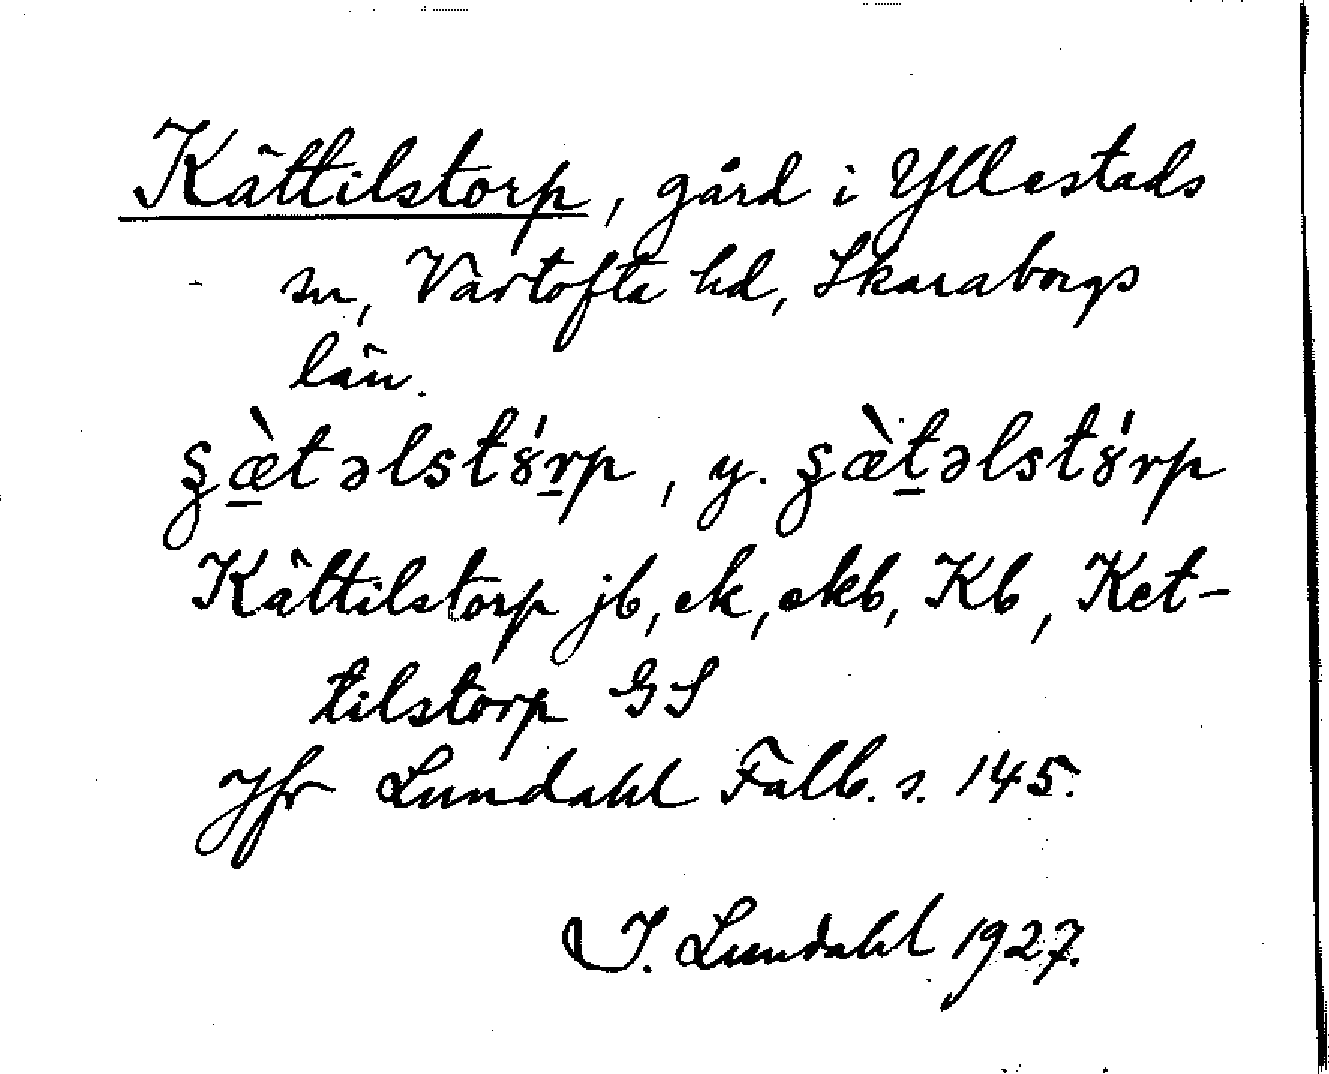 Kättilstorp, gård i Yllestads
sn, Vartofta hd, Skaraborgs
län.
ʂæ̠̀təlstɤ́r̠p, y. ʂæ̀t̠əlstɤ́rp
Kättilstorp jb, ek, ekb, Kb, Ket-
tilstorp GS
Jfr Lundahl Falb. s. 145.
I. Lundahl 1927.